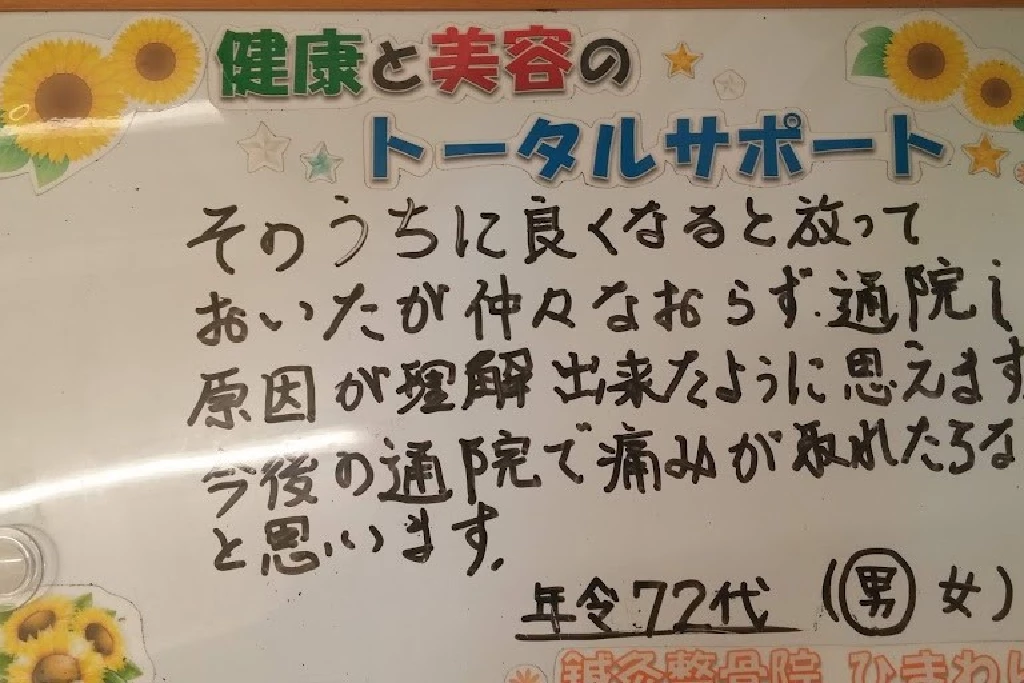 健康と美容の
トータルサポート
そのうちに良くなると放って
おいたが仲々なおらず.通院し
原因が理解出来たように思えます
今後の通院で痛みが取れたらな
と思います.
年令72代 (男 女)
鍼灸整骨院 ひまわり